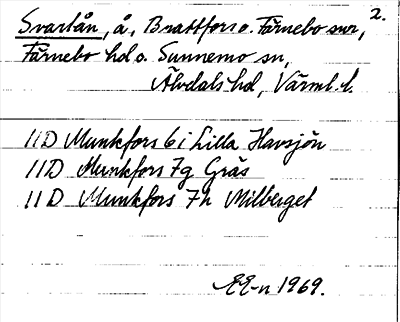 2.
Svartån, å, Brattfors o. Färnebo snr,
Färnebo hd o. Sunnemo sn,
Älvdals hd, Värml. l.
11D Munkfors 6i Lilla Havsjön
11D Munkfors 7g Gräs
11D Munkfors 7h Milberget
EE-n 1969.